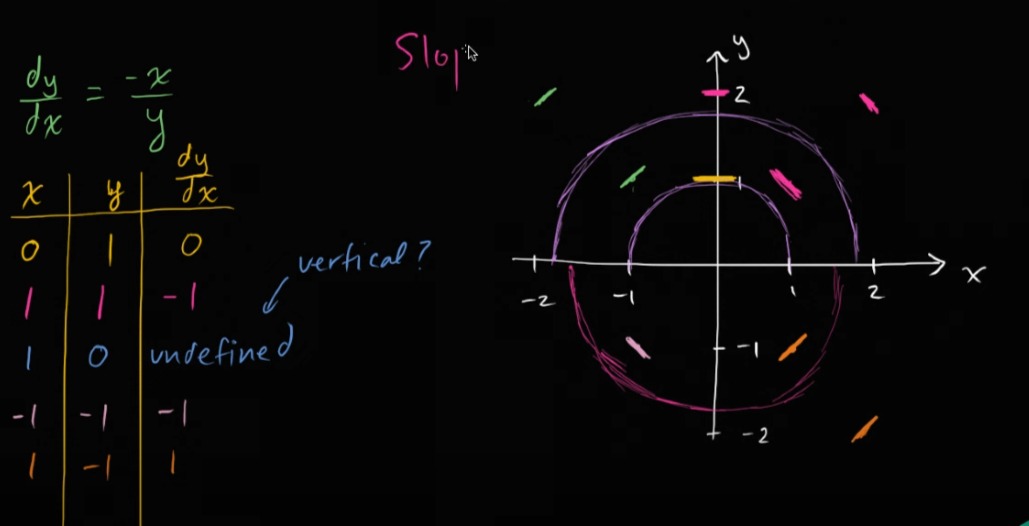 Slop
dy/dx = -x/y
x y dy/dx
0 1 0
1 1 -1
1 0 undefined
-1 -1 -1
1 -1 1
vertical?
y
2
1
-2 -1 1 2 x
-1
-2